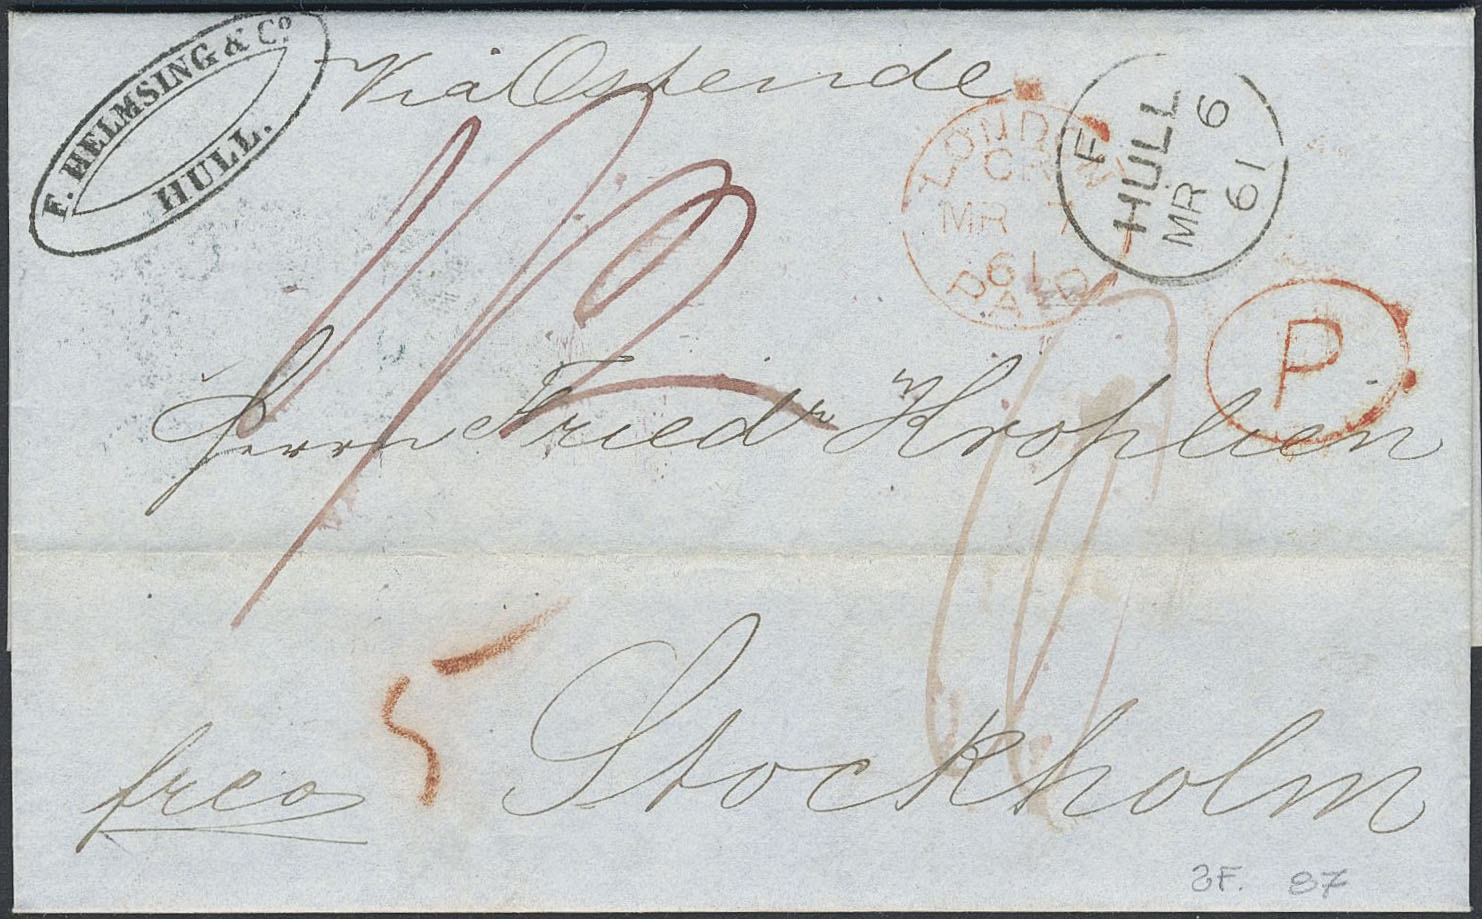 F. HELMSING & Co.
HULL.
Via Ostende
LONDON
CR
MR 7
61
PAID
F
HULL
MR 6
61
P
Herrn Friedr Kroplien
5
Stockholm
frco
87